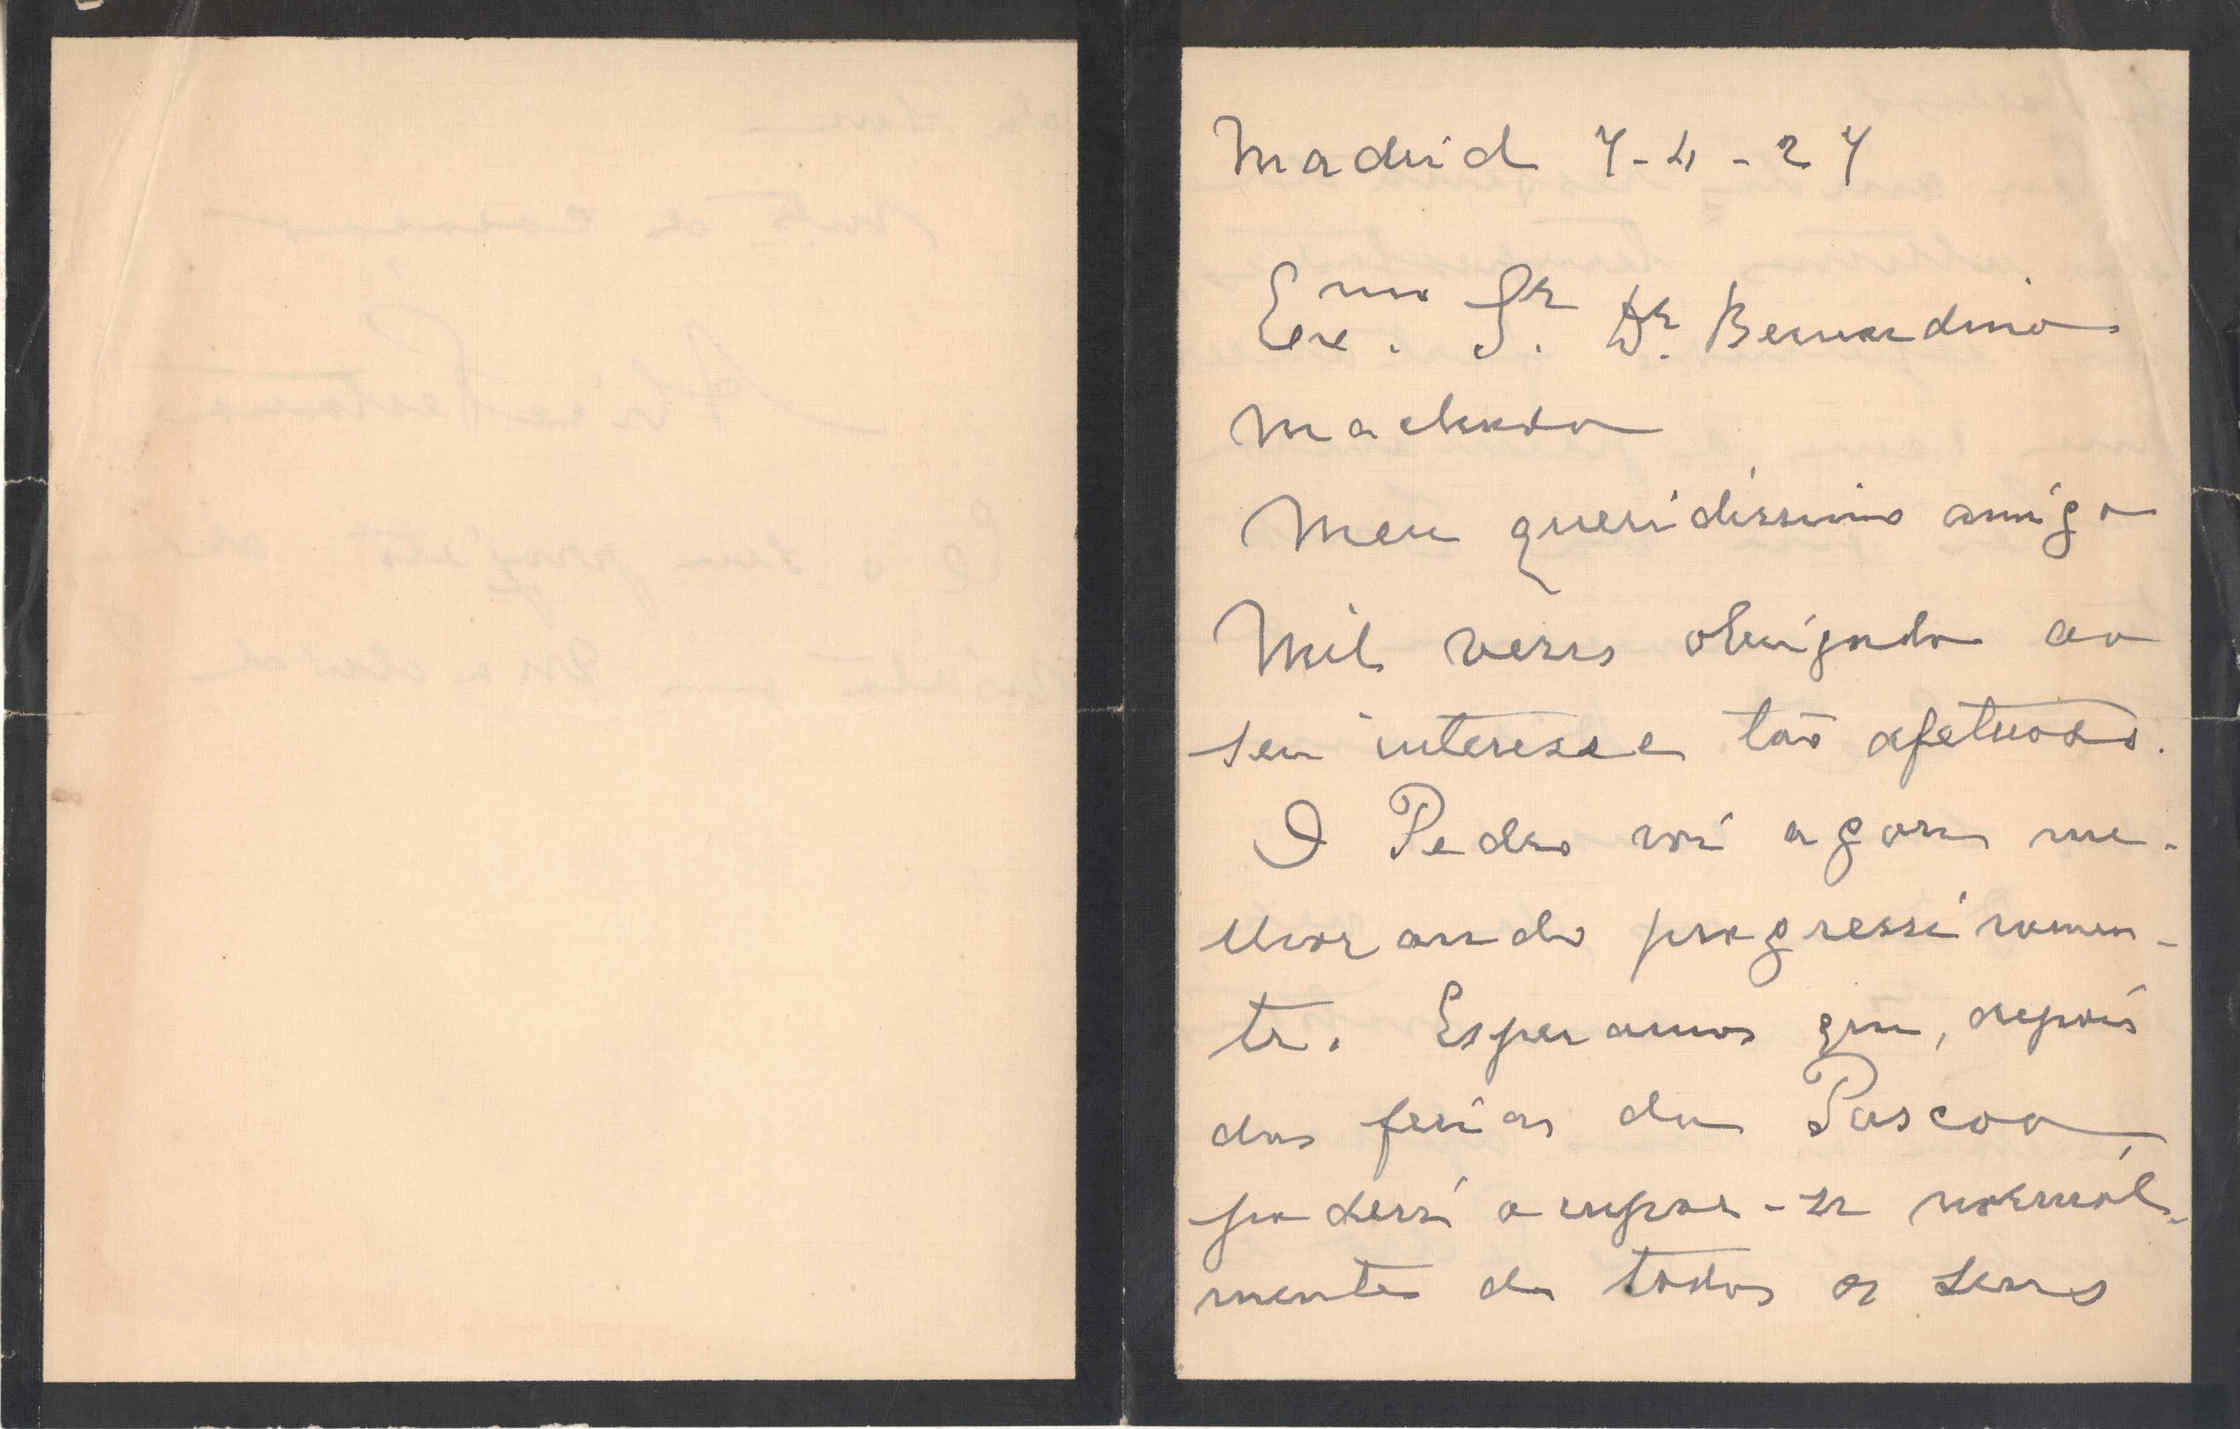 Madrid 7-4-27
Exmo. Sr. Dr. Bernardino
Machado
Meu queridissimo amigo
Mil vezes obrigado ao
seu interesse tão afetuoso.
O Pedro vai agora me-
lhorando progressivamen-
te. Esperamos que, depois
das ferias da Pascoa
poderá ocupar-se normál-
mente de todos os seus